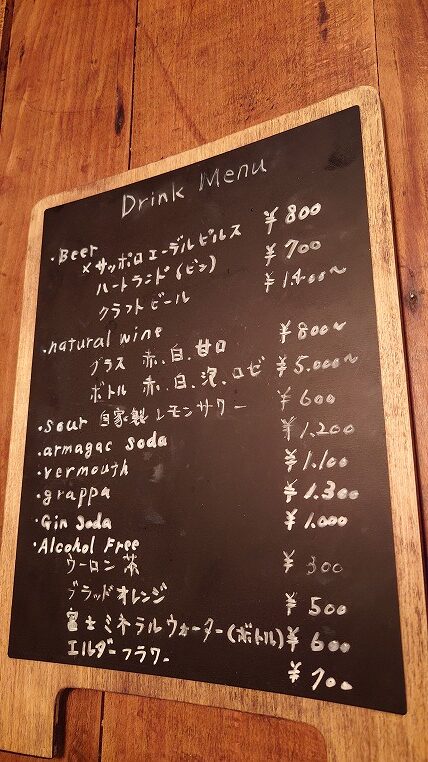 Drink Menu
・Beer
×サッポロエーデルピルス ¥800
ハートランド(ビン) ¥700
クラフトビール ¥1.400〜
・natural wine
グラス 赤.白.甘口 ¥800〜
ボトル 赤.白.泡.ロゼ ¥5.000〜
・sour 自家製レモンサワー ¥600
・armagac soda ¥1.200
・vermouth ¥1.100
・grappa ¥1.300
・Gin Soda ¥1.000
・Alcohol Free
ウーロン茶 ¥300
ブラッドオレンジ ¥500
富士ミネラルウォーター(ボトル) ¥600
エルダーフラワー ¥700